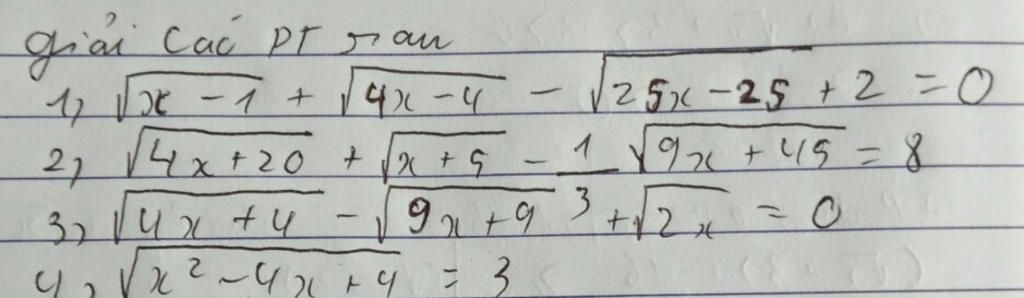 giải các PT sau
1, √(x - 1) + √(4x - 4) - √(25x - 25) + 2 = 0
2, √(4x + 20) + √(x + 5) - 1/3 √(9x + 45) = 8
3, √(4x + 4) - √(9x + 9) + √(2x) = 0
4, √(x² - 4x + 4) = 3